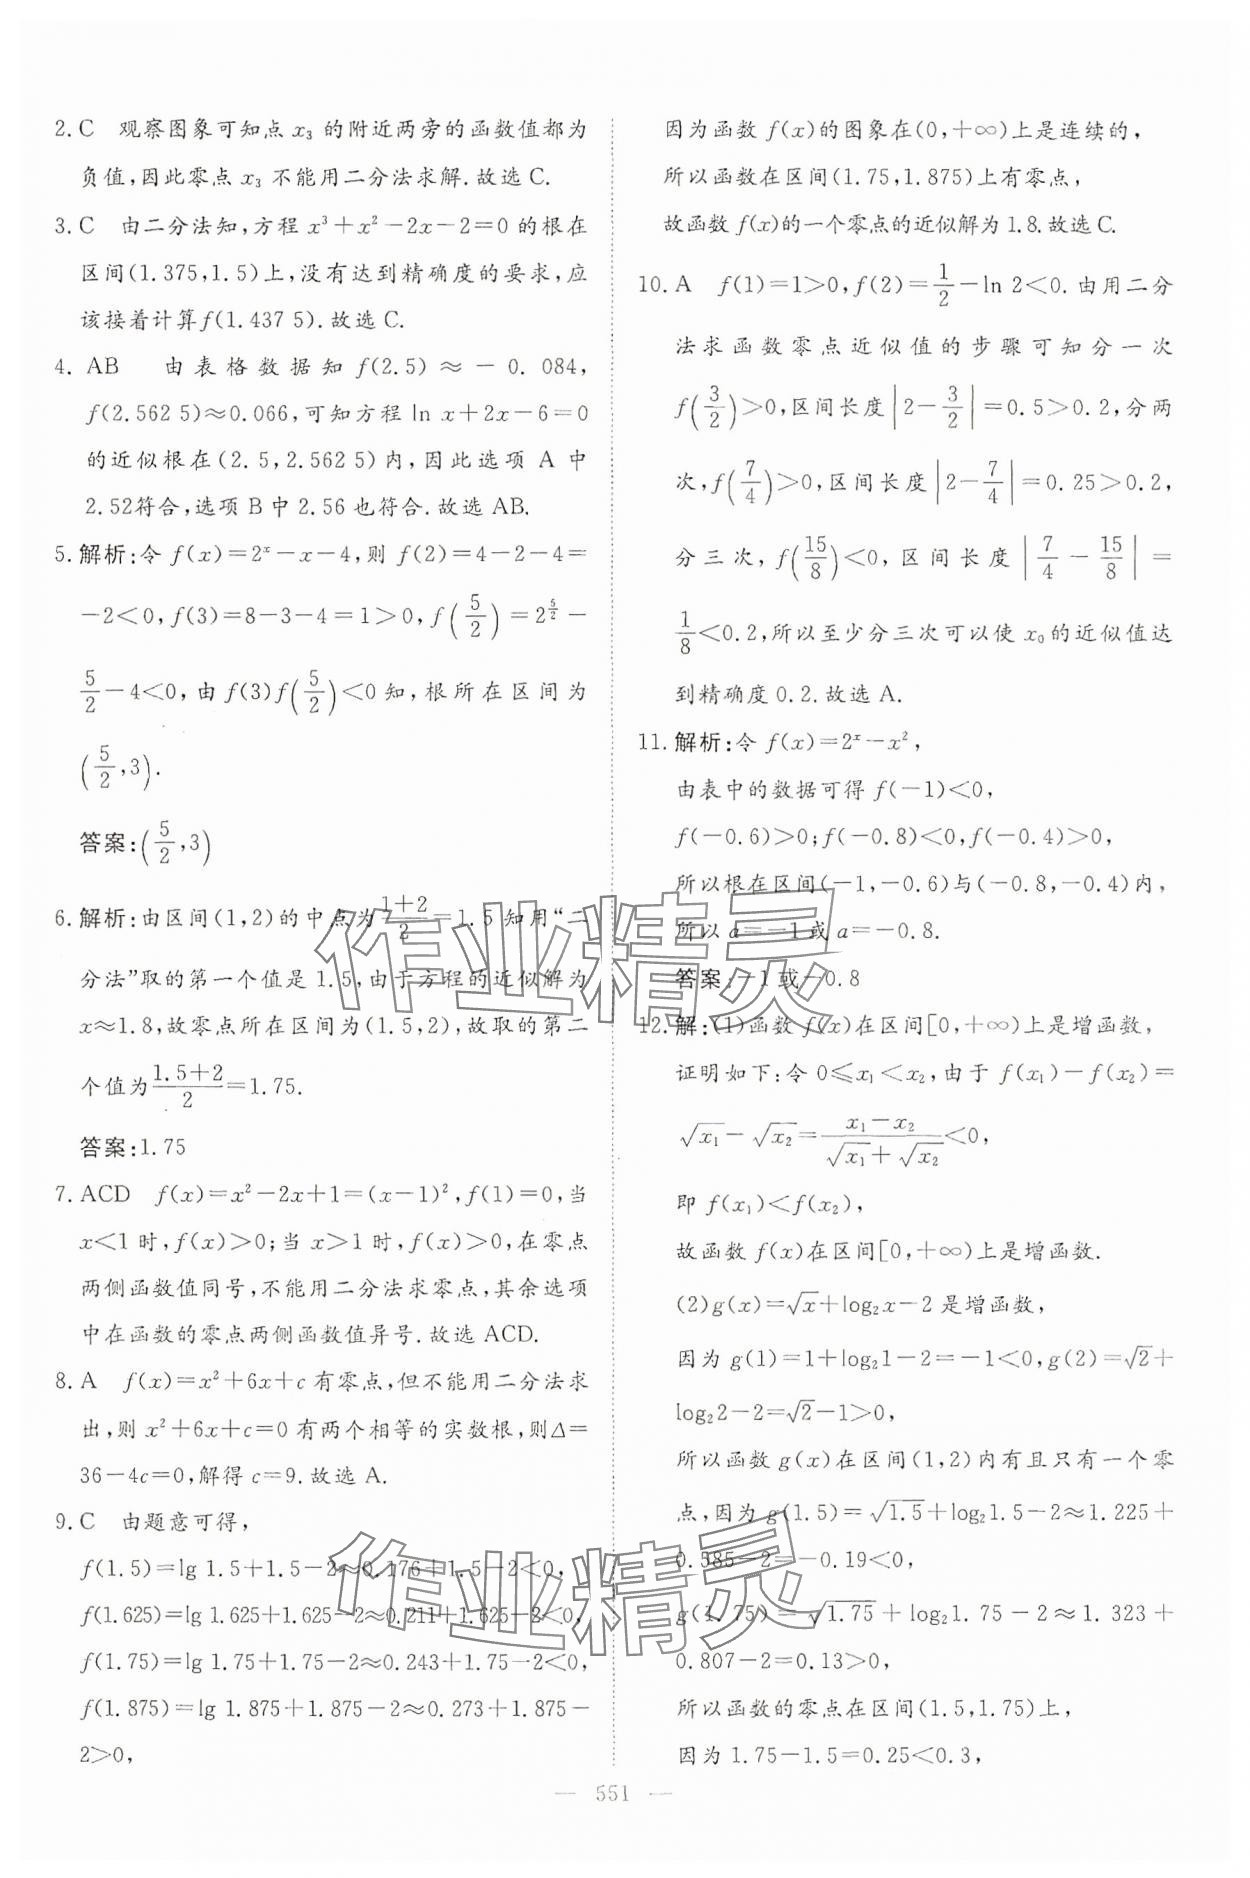 2. C　观察图象可知点 x₃ 的附近两旁的函数值都为
负值,因此零点 x₃ 不能用二分法求解.故选 C.
3. C　由二分法知,方程 x³+x²-2x-2=0 的根在
区间(1.375,1.5)上,没有达到精确度的要求,应
该接着计算 f(1.437 5).故选 C.
4. AB　由表格数据知 f(2.5)≈-0.084,
f(2.562 5)≈0.066,可知方程 ln x+2x-6=0
的近似根在(2.5,2.562 5)内,因此选项 A 中
2.52符合,选项 B 中 2.56 也符合.故选 AB.
5. 解析:令 f(x)=2ˣ-x-4,则 f(2)=4-2-4=
-2<0,f(3)=8-3-4=1>0,f(5/2)=2^(5/2)-
5/2-4<0,由 f(3)f(5/2)<0 知,根所在区间为
(5/2,3).
答案:(5/2,3)
6. 解析:由区间(1,2)的中点为(1+2)/2=1.5 知用“二
分法”取的第一个值是 1.5,由于方程的近似解为
x≈1.8,故零点所在区间为(1.5,2),故取的第二
个值为(1.5+2)/2=1.75.
答案:1.75
7. ACD　f(x)=x²-2x+1=(x-1)²,f(1)=0,当
x<1 时,f(x)>0;当 x>1 时,f(x)>0,在零点
两侧函数值同号,不能用二分法求零点,其余选项
中在函数的零点两侧函数值异号.故选 ACD.
8. A　f(x)=x²+6x+c 有零点,但不能用二分法求
出,则 x²+6x+c=0 有两个相等的实数根,则Δ=
36-4c=0,解得 c=9.故选 A.
9. C　由题意可得,
f(1.5)=lg 1.5+1.5-2≈0.176+1.5-2<0,
f(1.625)=lg 1.625+1.625-2≈0.211+1.625-2<0,
f(1.75)=lg 1.75+1.75-2≈0.243+1.75-2<0,
f(1.875)=lg 1.875+1.875-2≈0.273+1.875-
2>0,
因为函数 f(x)的图象在(0,+∞)上是连续的,
所以函数在区间(1.75,1.875)上有零点,
故函数 f(x)的一个零点的近似解为 1.8.故选 C.
10. A　f(1)=1>0,f(2)=1/2-ln 2<0.由用二分
法求函数零点近似值的步骤可知分一次
f(3/2)>0,区间长度|2-3/2|=0.5>0.2,分两
次,f(7/4)>0,区间长度|2-7/4|=0.25>0.2,
分三次,f(15/8)<0,区间长度|7/4-15/8|=
1/8<0.2,所以至少分三次可以使 x₀ 的近似值达
到精确度 0.2.故选 A.
11. 解析:令 f(x)=2ˣ-x²,
由表中的数据可得 f(-1)<0,
f(-0.6)>0;f(-0.8)<0,f(-0.4)>0,
所以根在区间(-1,-0.6)与(-0.8,-0.4)内,
所以 a=-1 或 a=-0.8.
答案:-1 或-0.8
12. 解:(1)函数 f(x)在区间[0,+∞)上是增函数,
证明如下:令 0≤x₁<x₂,由于 f(x₁)-f(x₂)=
√x₁-√x₂=(x₁-x₂)/(√x₁+√x₂)<0,
即 f(x₁)<f(x₂),
故函数 f(x)在区间[0,+∞)上是增函数.
(2)g(x)=√x+log₂x-2 是增函数,
因为 g(1)=1+log₂1-2=-1<0,g(2)=√2+
log₂2-2=√2-1>0,
所以函数 g(x)在区间(1,2)内有且只有一个零
点,因为 g(1.5)=√1.5+log₂1.5-2≈1.225+
0.585-2=-0.19<0,
g(1.75)=√1.75+log₂1.75-2≈1.323+
0.807-2=0.13>0,
所以函数的零点在区间(1.5,1.75)上,
因为 1.75-1.5=0.25<0.3,
— 551 —
作业精灵
作业精灵